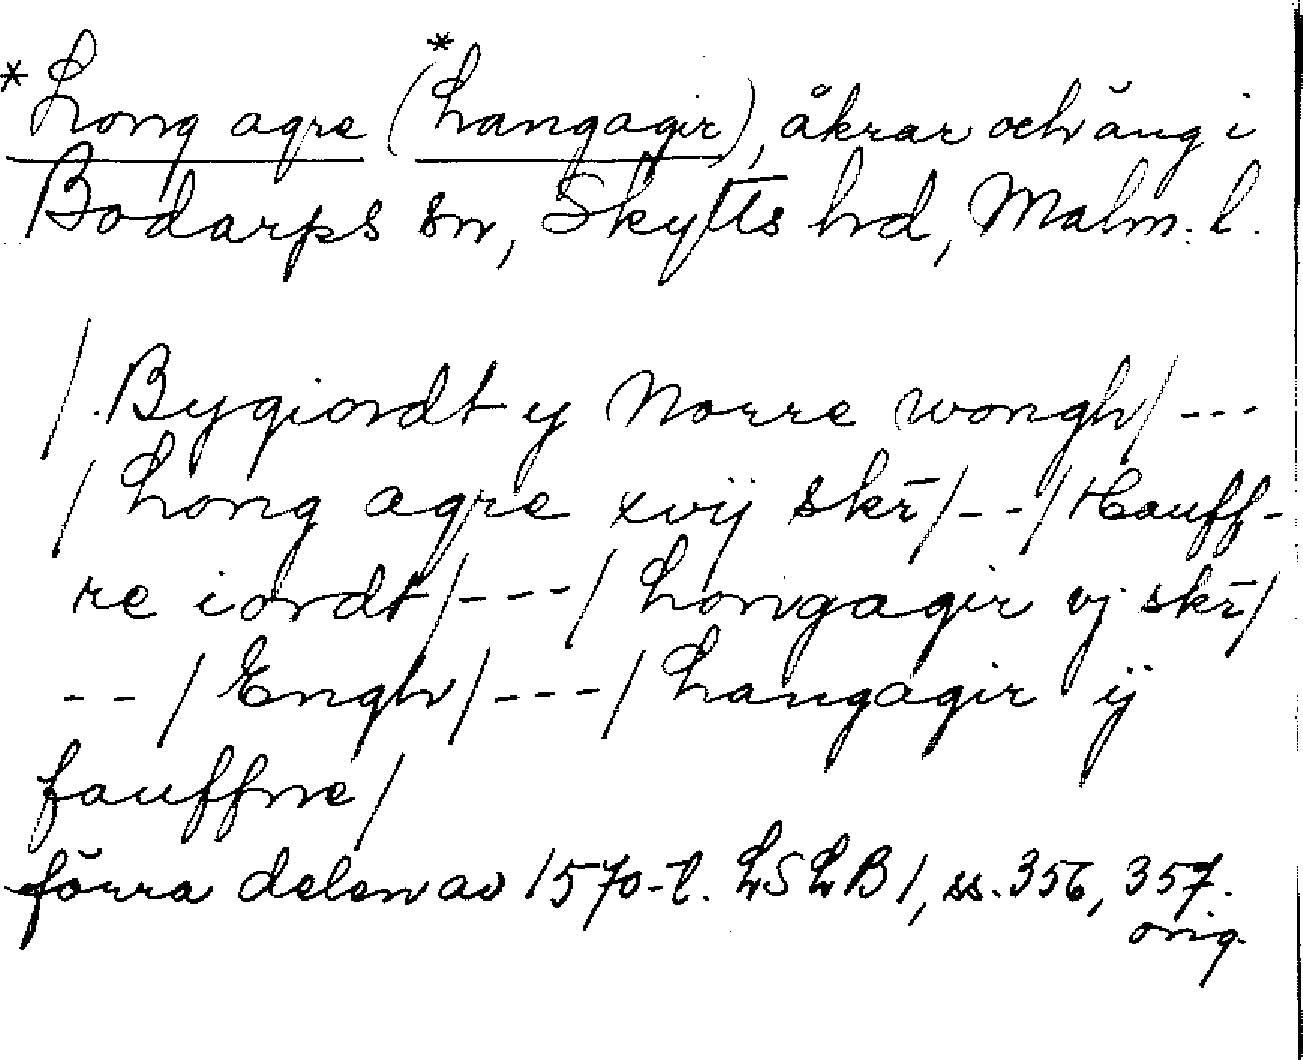 *Long agre (*Langagir), åkrar och äng i
Bodarps sn, Skytts hd, Malm. l.
/ Bygiordt y Norre wongh/ ---
/ Long agre xvij skr̄/ -- /Hauff-
re iordt/ --- / Longagir vj skr̄/
-- / Engh/ --- / Langagir ij
fauffne/
förra delen av 1570-t. LSLB 1, ss. 356, 357.
orig.